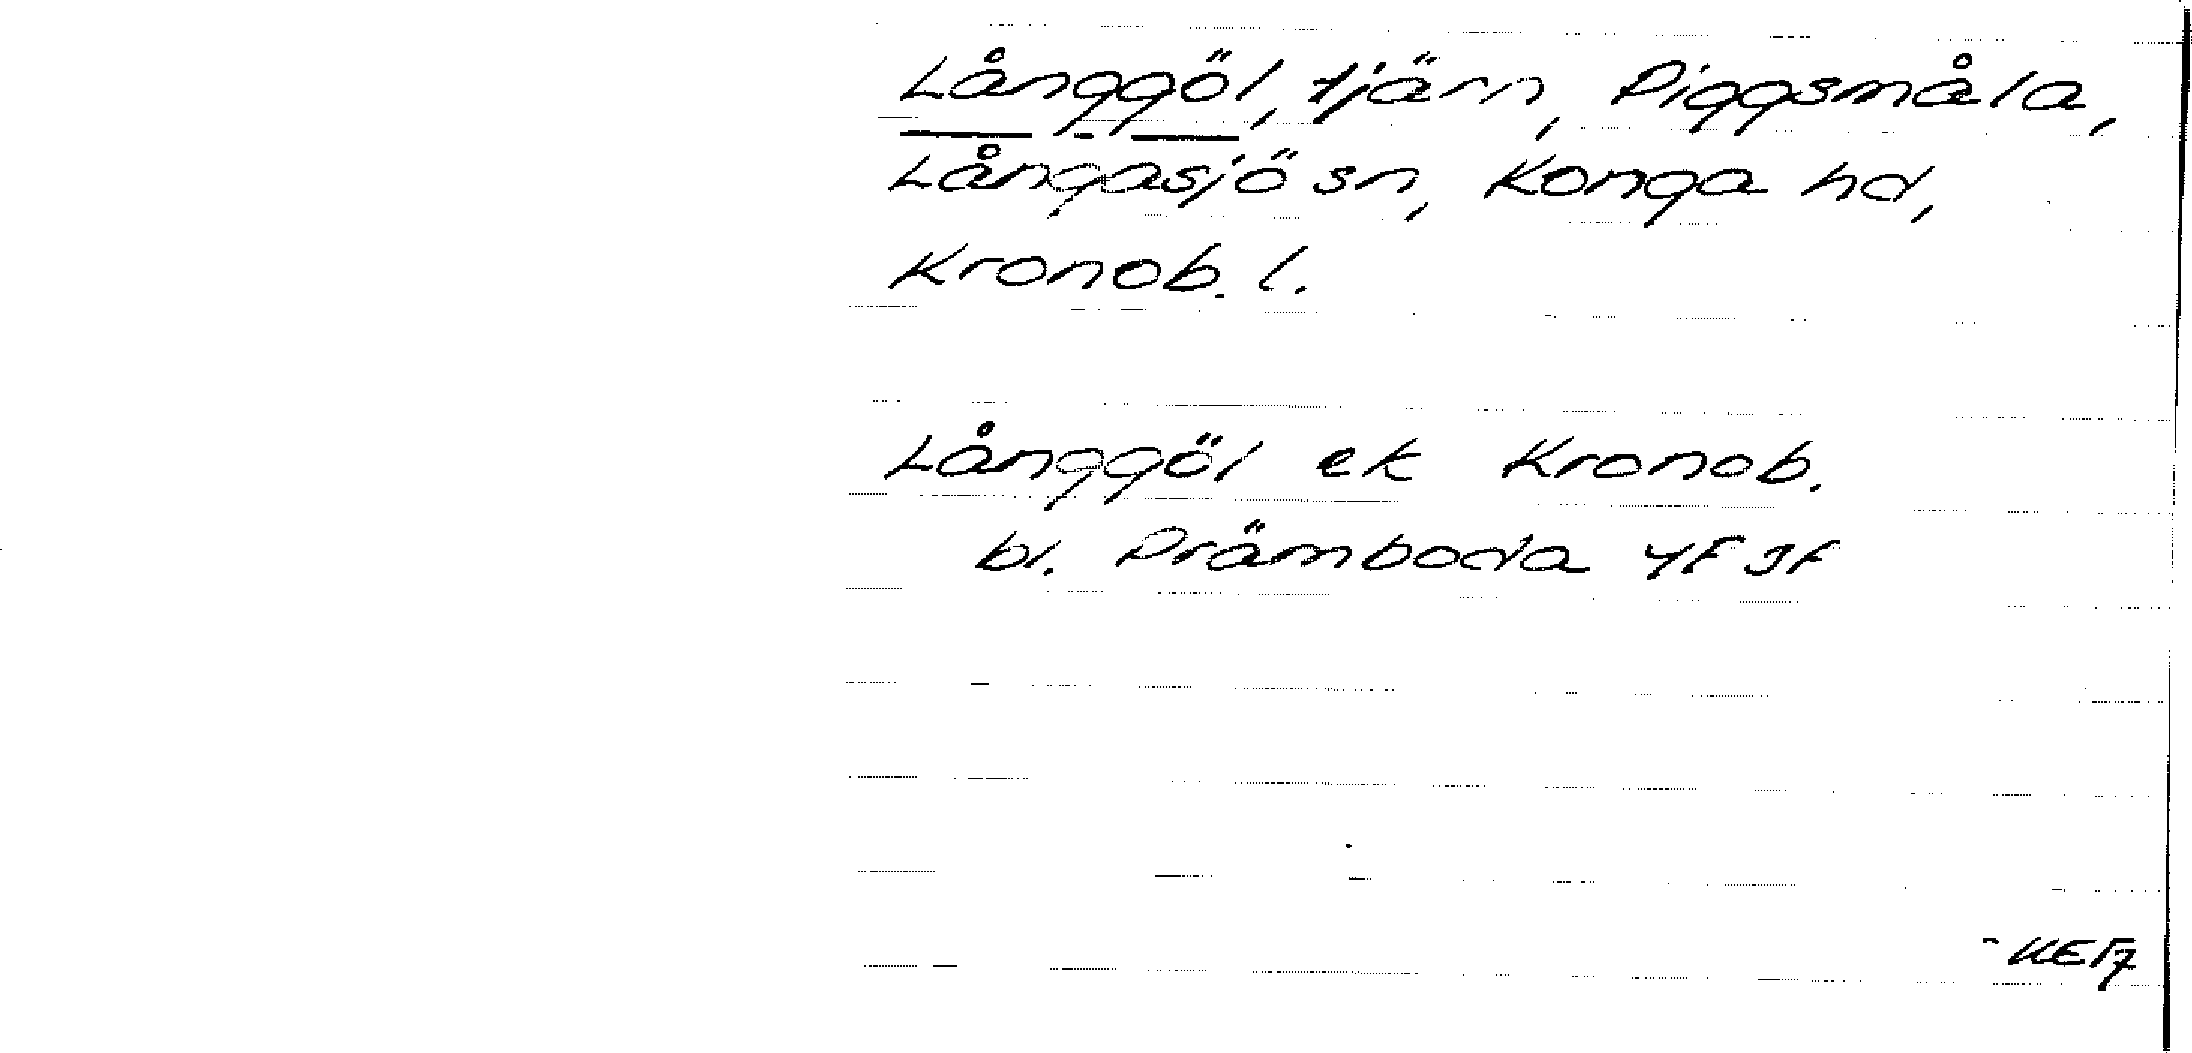 Långgöl, tjärn, Piggsmåla,
Långasjö sn, Konga hd,
Kronob. l.
Långgöl ek Kronob.
bl. Prämboda 4F 3f